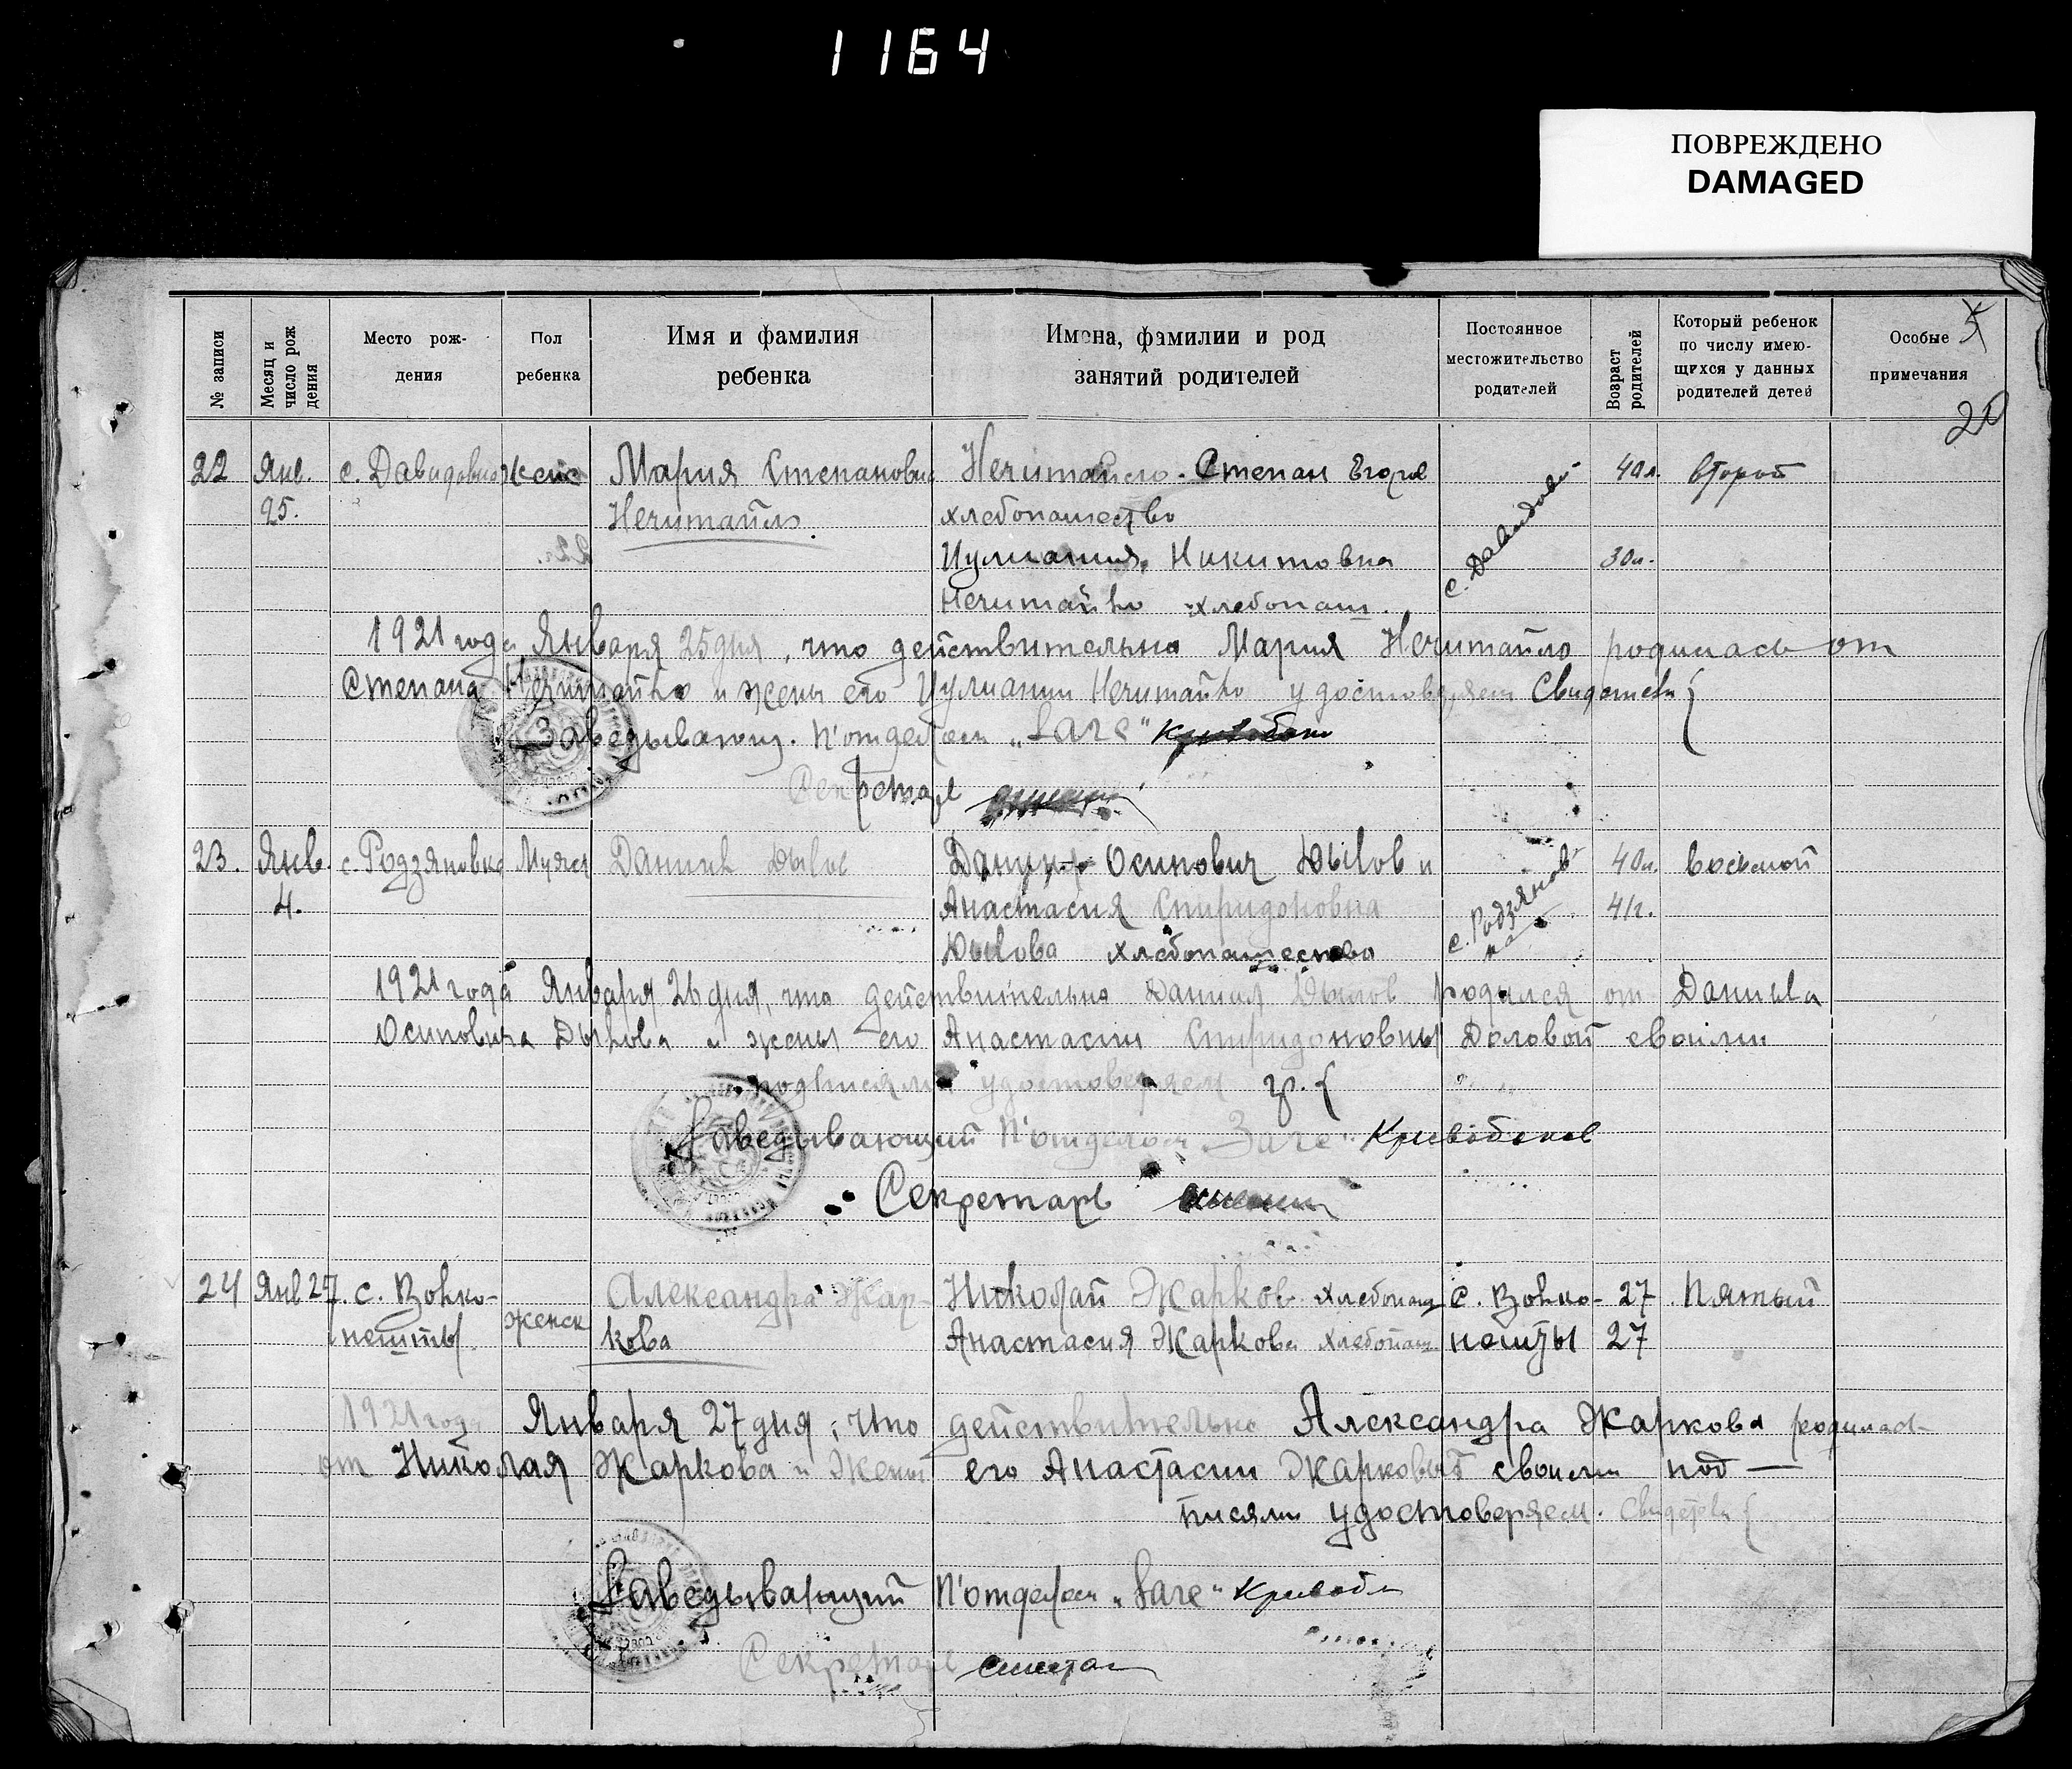 1164
ПОВРЕЖДЕНО
DAMAGED
№ записи
Месяц и число рождения
Место рождения
Пол ребенка
Имя и фамилия ребенка
Имена, фамилии и род занятий родителей
Постоянное местожительство родителей
Возраст родителей
Который ребенок по числу имеющихся у данных родителей детей
Особые примечания
5
20
22 Янв. с. Давидовка женс Мария Степановна Нечитайло Степан Егоров 40 л. второй
25. Нечитайло хлебопашество с. Давидов
Иулиания Никитовна 30 л.
Нечитайло хлебопаш.
1921 года Января 25 дня, что действительно Мария Нечитайло родилась от
Степана Нечитайло и жены его Иулиании Нечитайло удостоверяем Свидетели {
Заведывающ. П'отделом „Загс"
Секретарь
23. Янв. с. Родзяновка Мужск Даниил Дылов Осипович Дылов и 40 л. восьмой
4. Анастасия Спиридоновна с. Родзяновка 41 г.
Дылова хлебопашество
1921 года Января 26 дня, что действительно Даниил Дылов родился от Данила
Осиповича Дылова и жены его Анастасии Спиридоновны Доловой своими
подписями удостоверяем гр. {
Заведывающий П'отделом Загс
Секретарь
24 Янв 27. с. Волко- женск Александра Жар- Николай Жарков хлебопаш с. Волко- 27 Пятый
нешты кова Анастасия Жаркова хлебопаш нешты 27
1921 года Января 27 дня, что действительно Александра Жаркова родилась
от Николая Жаркова и жены его Анастасии Жарковой своими под—
писями удостоверяем. Свидетели {
Заведывающий П'отделом „Загс"
Секретарь